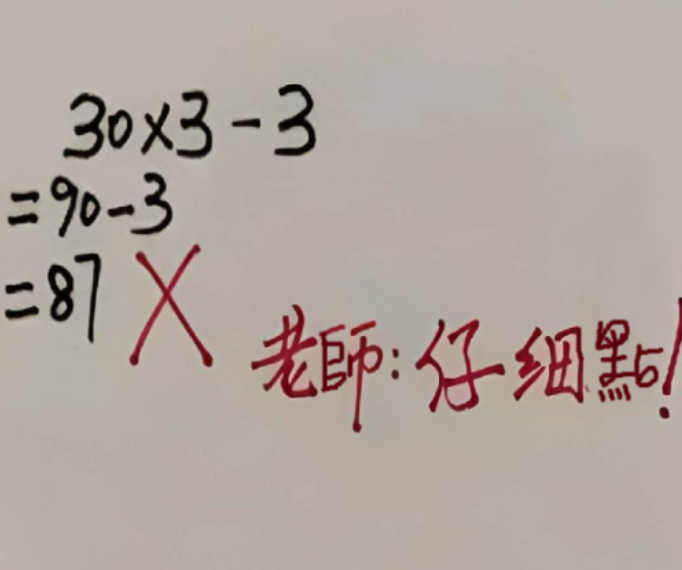 30×3-3
=90-3
=87 X
老師:仔细點!